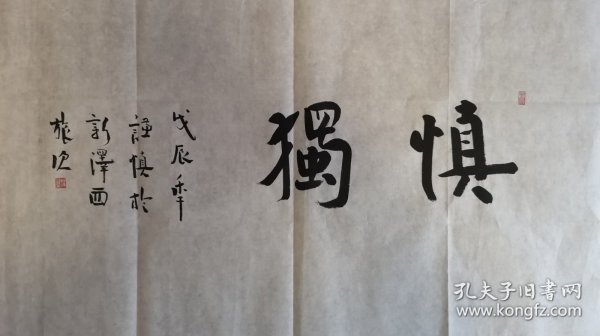 慎獨
戊辰年
謹慎於
新澤西
旅次
孔夫子旧书网
www.kongfz.com